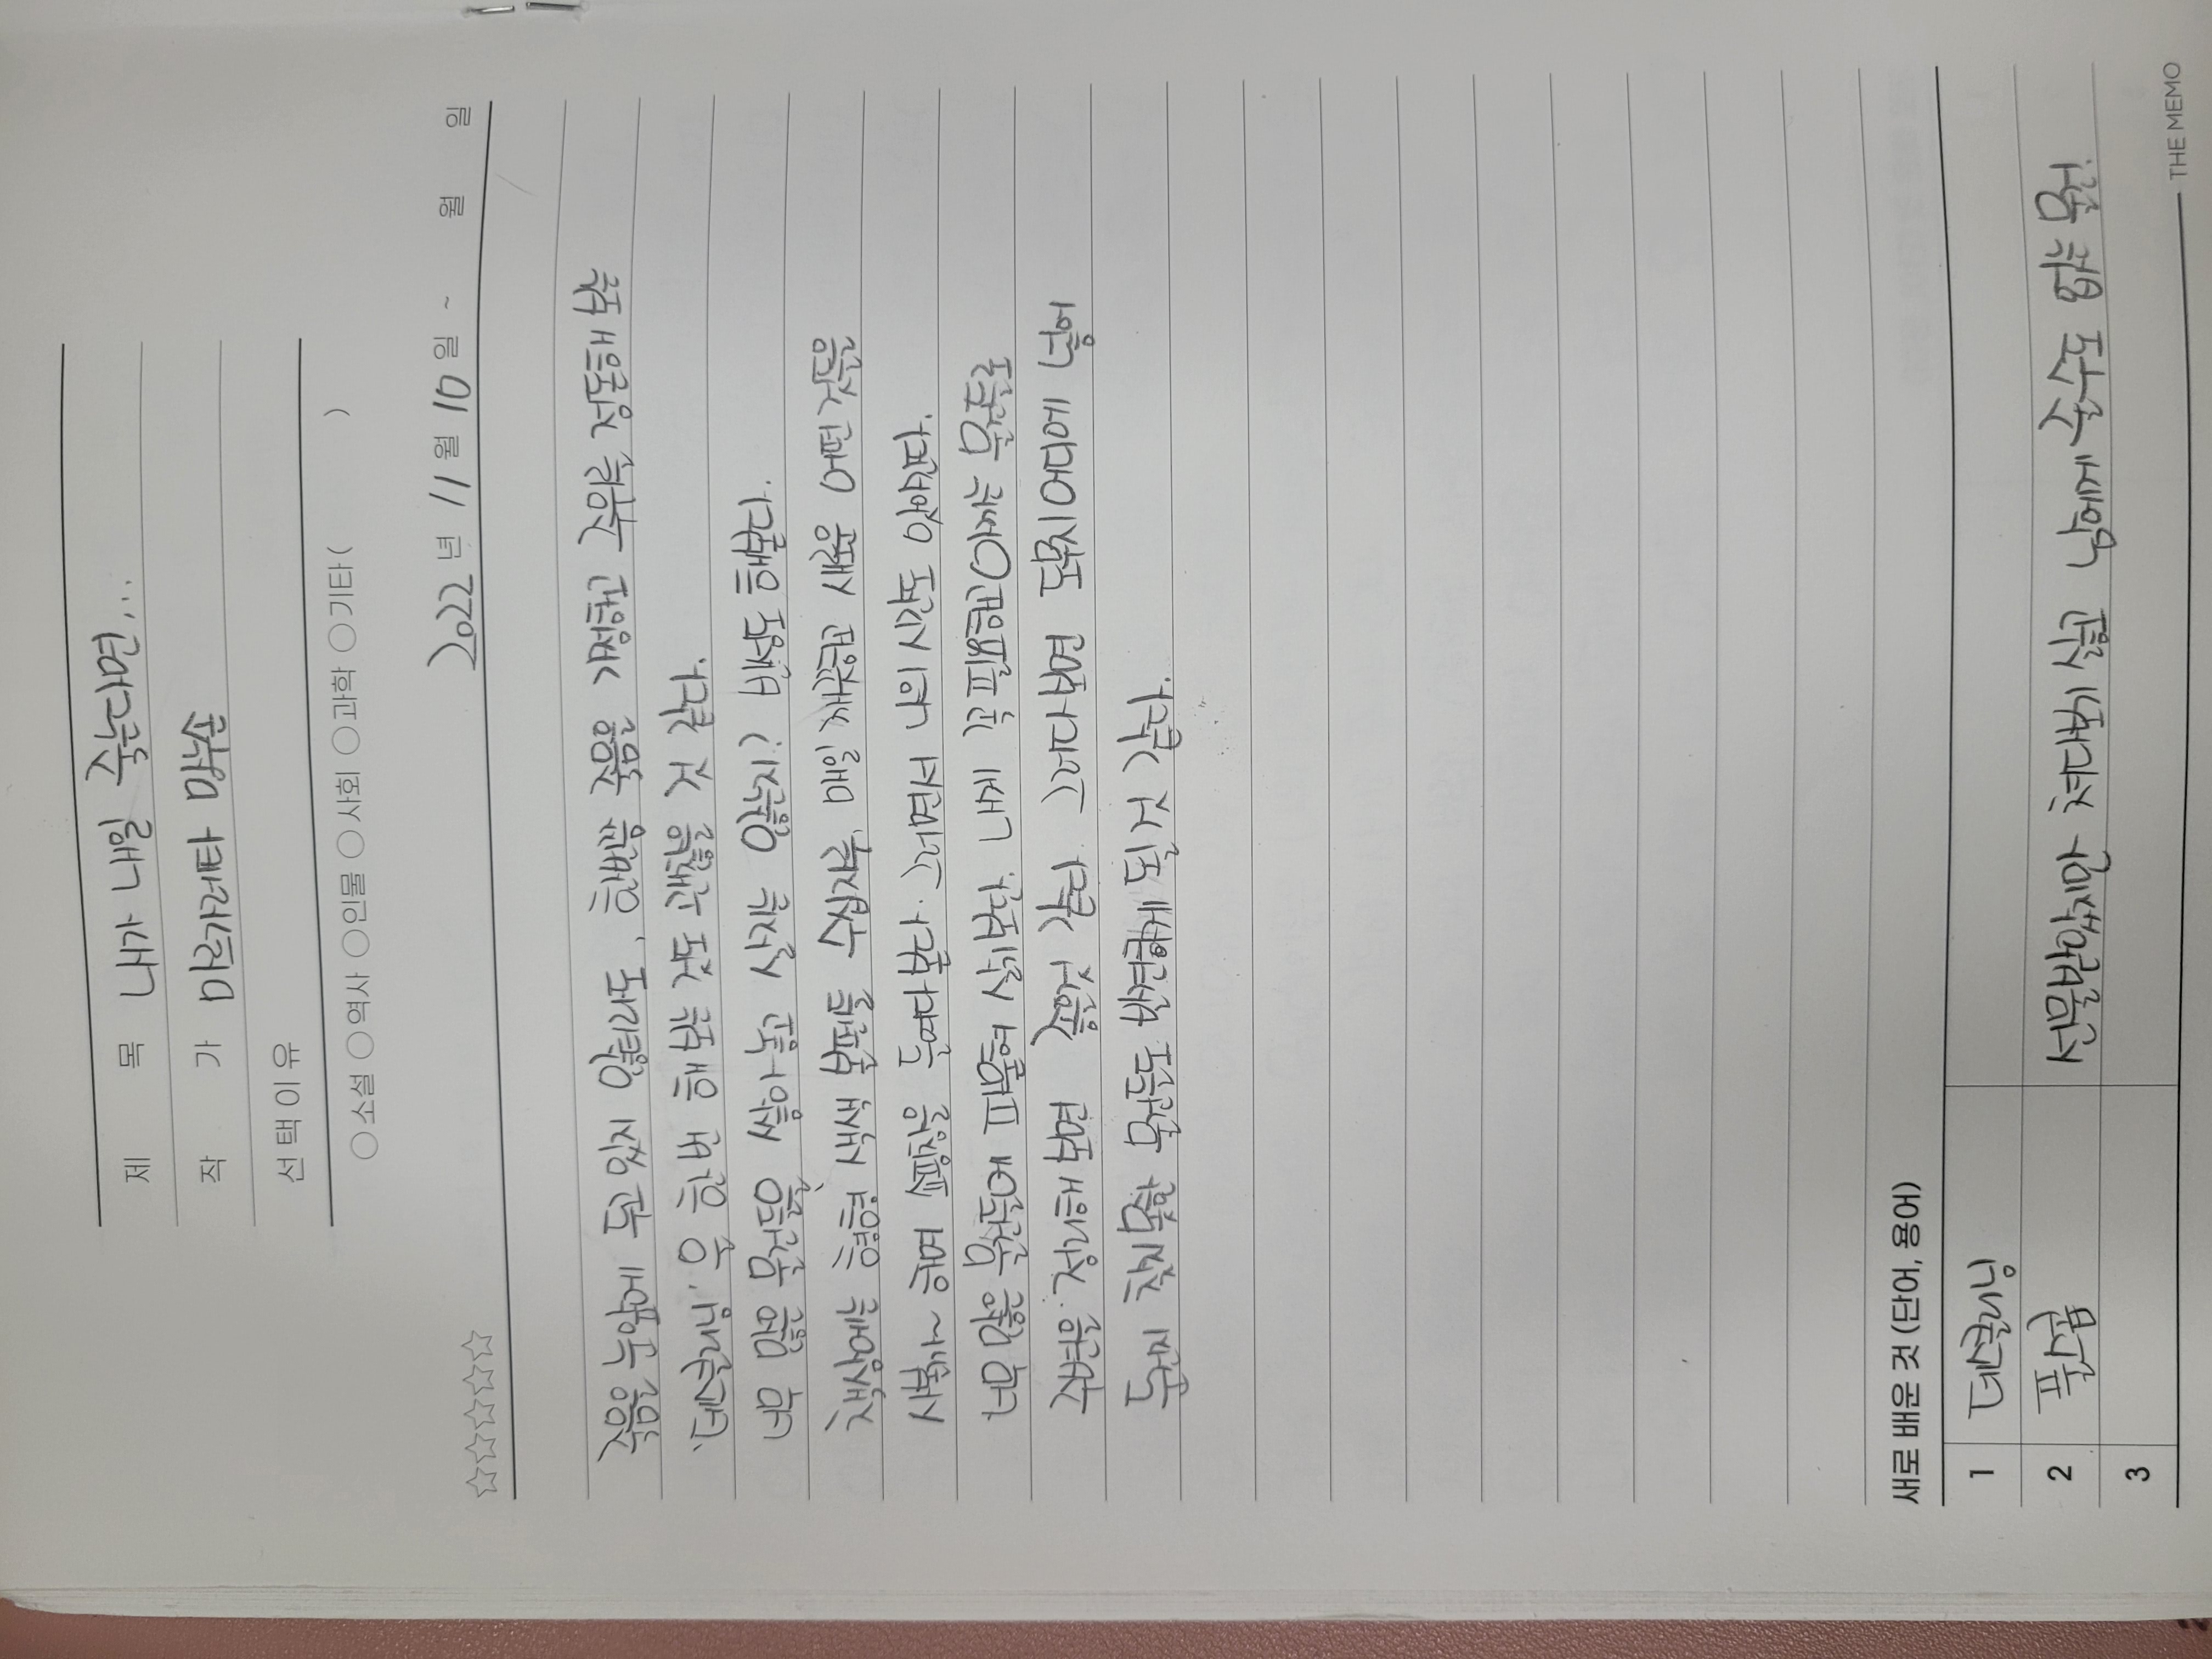 제 목 내가 내일 죽는다면...
작 가 마르가레타 망누손
선택이유
○소설 ○역사 ○인물 ○사회 ○과학 ○기타( )
2022 년 11 월 10 일 ~ 월 일
☆☆☆☆☆
죽음을 눈앞에 두고 있지 않더라도, 한번쯤 죽음을 가정하고 주위를 정돈해 보는
'데스클리닝'은 한 번 해 보는 것도 괜찮을 것 같다.
너무 많은 물건들을 쌓아 놓고 살지는 않는지? 반성도 해본다.
책상에는 형형 색색 볼펜들 수십자루, 매일 깨끗하고 새로운 어떤 것들을
사볼까~ 하며 쇼핑창을 들여다 본다. 그러면서 나의 시간도 앗아간다.
너무 많은 물건들에 파묻혀 살기보단. 내게 꼭 필요하고 아끼는 물건들로
주변을 정리해 보면 좋을것 같다. 그러다보면 도무지 어디에 넣어
둔건지 찾지 못한 물건들도 발견하게 될 것 같다.
새로 배운 것 (단어, 용어)
1 데스클리닝
2 풀스콥 선물받았지만 쳐다보기 싫고 남에게 줄수도 없는 물건.
3
THE MEMO